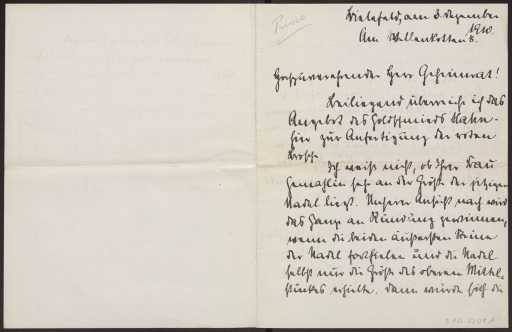 Privat
Bielefeld, am 3. Dezember
1910.
Am Wellenkotten 8.
Hochzuverehrender Herr Geheimrat!
Beiliegend überreiche ich das
Angebot des Goldschmieds
hier zur Anfertigung der roten
Brosche.
Ich weiß nicht, ob Ihrer Frau
Gemahlin sehr an der Größe der jetzigen
Nadel liegt. Unserer Ansicht nach wird
das Ganze an Rundung gewinnen,
wenn die beiden äußersten Steine
der Nadel fortfielen und die Nadel
selbst nur die Größe des oberen Mittel-
stückes erhielte. Dann würde sich die